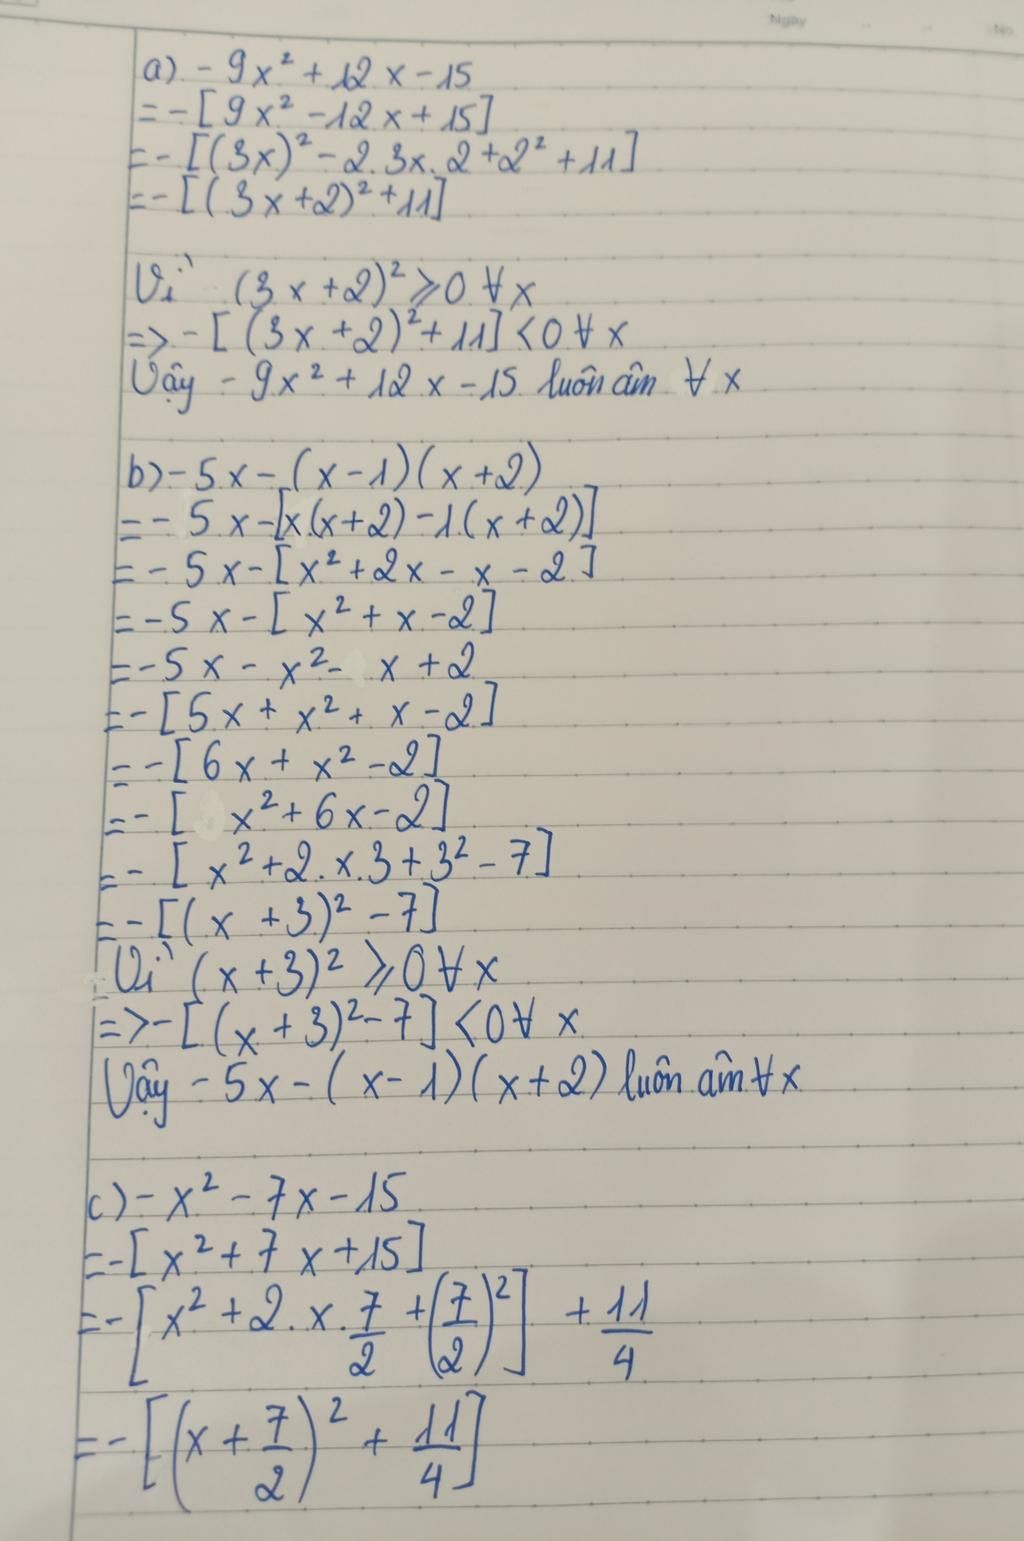 Ngày
No.
a) - 9x² + 12x - 15
= - [9x² - 12x + 15]
= - [(3x)² - 2.3x.2 + 2² + 11]
= - [(3x + 2)² + 11]
Vì (3x + 2)² ⩾ 0 ∀ x
=> - [(3x + 2)² + 11] < 0 ∀ x
Vậy - 9x² + 12x - 15 luôn âm ∀ x
b) - 5x - (x - 1)(x + 2)
= - 5x - [x(x + 2) - 1(x + 2)]
= - 5x - [x² + 2x - x - 2]
= - 5x - [x² + x - 2]
= - 5x - x² - x + 2
= - [5x + x² + x - 2]
= - [6x + x² - 2]
= - [x² + 6x - 2]
= - [x² + 2.x.3 + 3² - 7]
= - [(x + 3)² - 7]
Vì (x + 3)² ⩾ 0 ∀ x
=> - [(x + 3)² - 7] < 0 ∀ x
Vậy - 5x - (x - 1)(x + 2) luôn âm ∀ x
c) - x² - 7x - 15
= - [x² + 7x + 15]
= - [x² + 2.x.7/2 + (7/2)²] + 11/4
= - [(x + 7/2)² + 11/4]